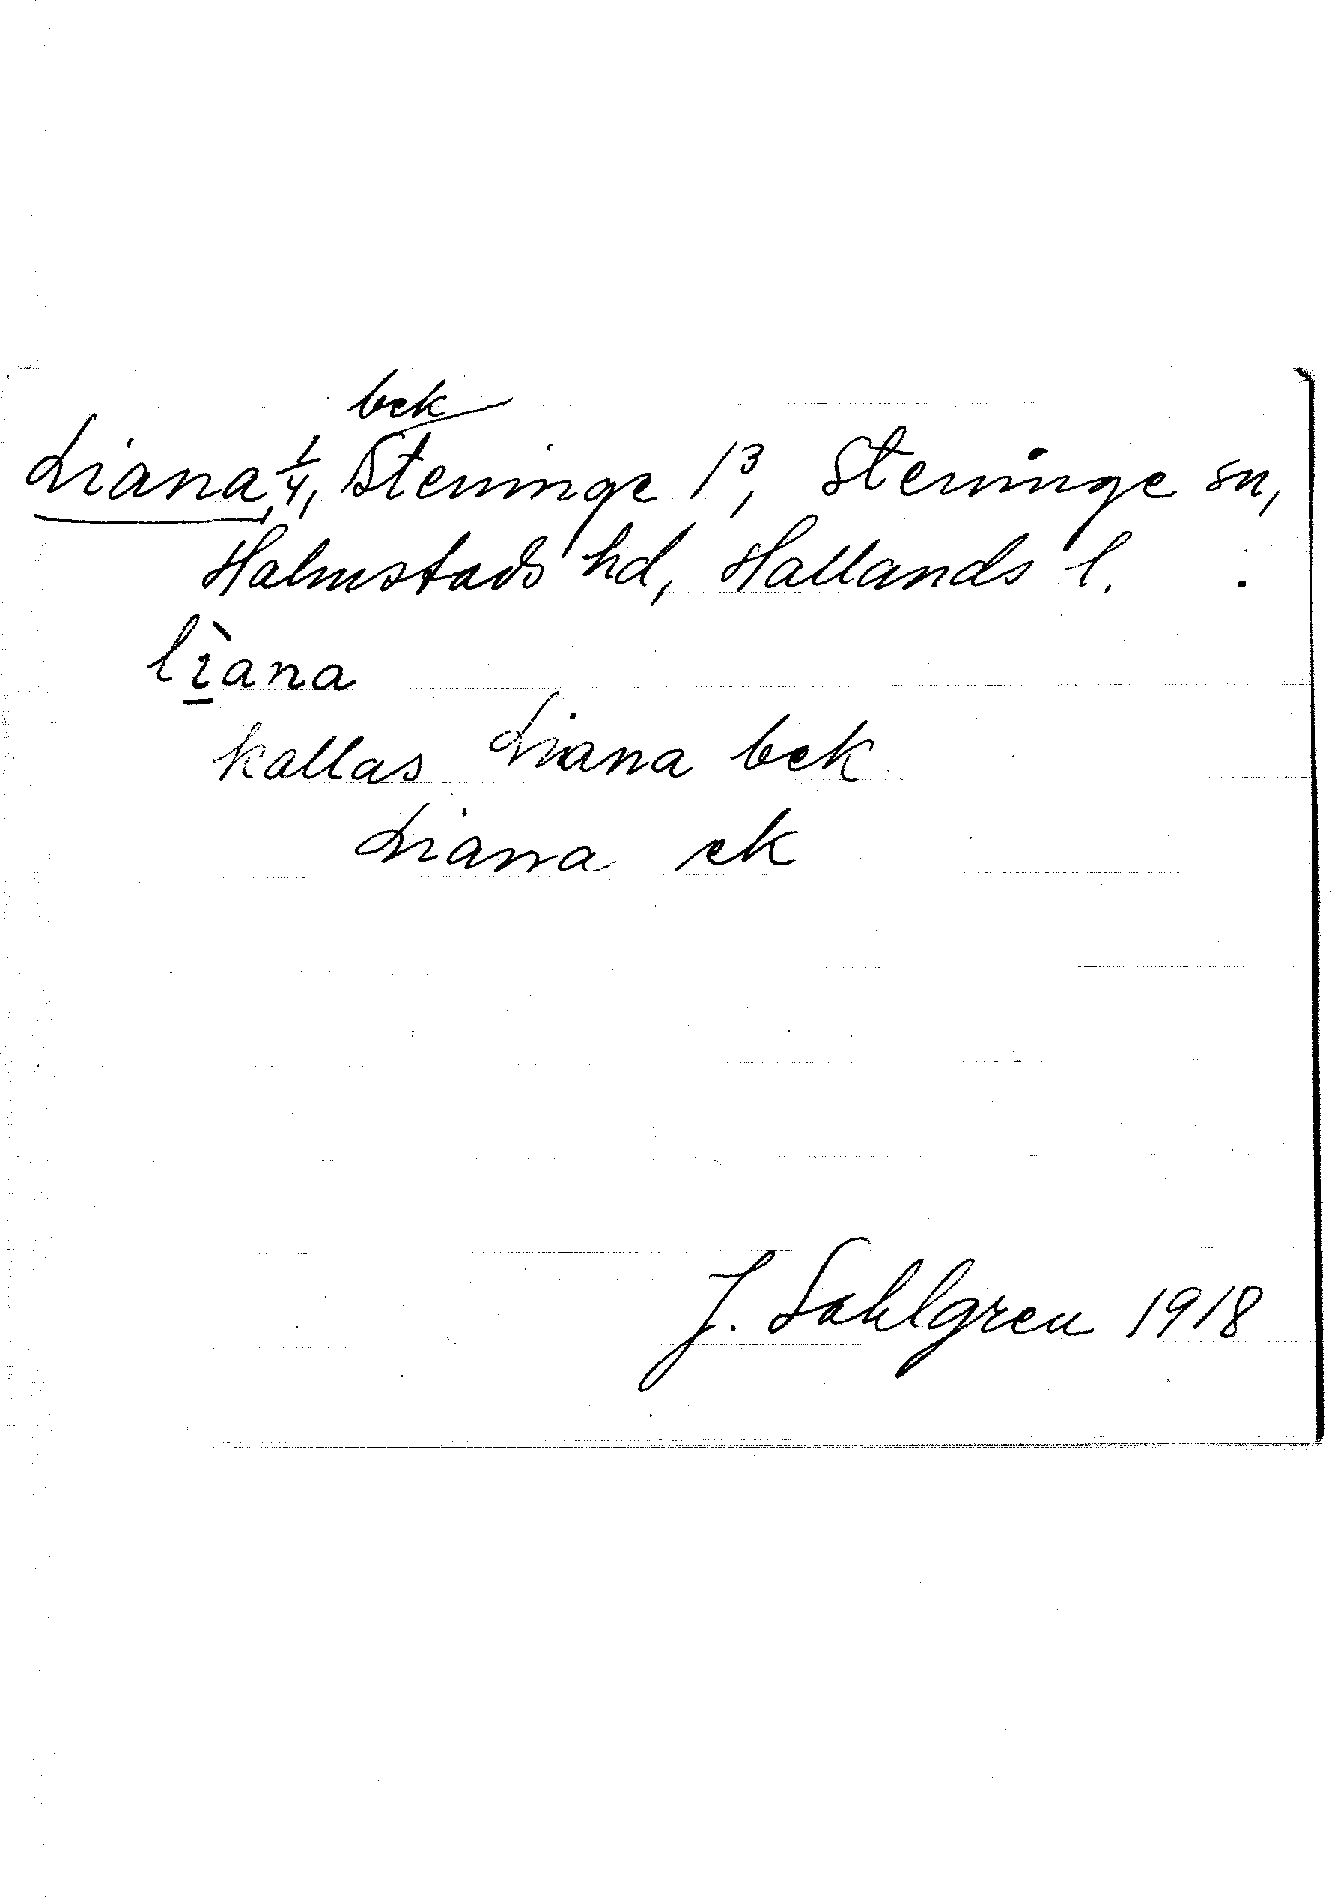 bck
Liana, 1/4, Steninge 1³, Steninge sn,
Halmstads hd, Hallands l.
lìana
kallas Liana bck
Liana ck
J. Sahlgren 1918